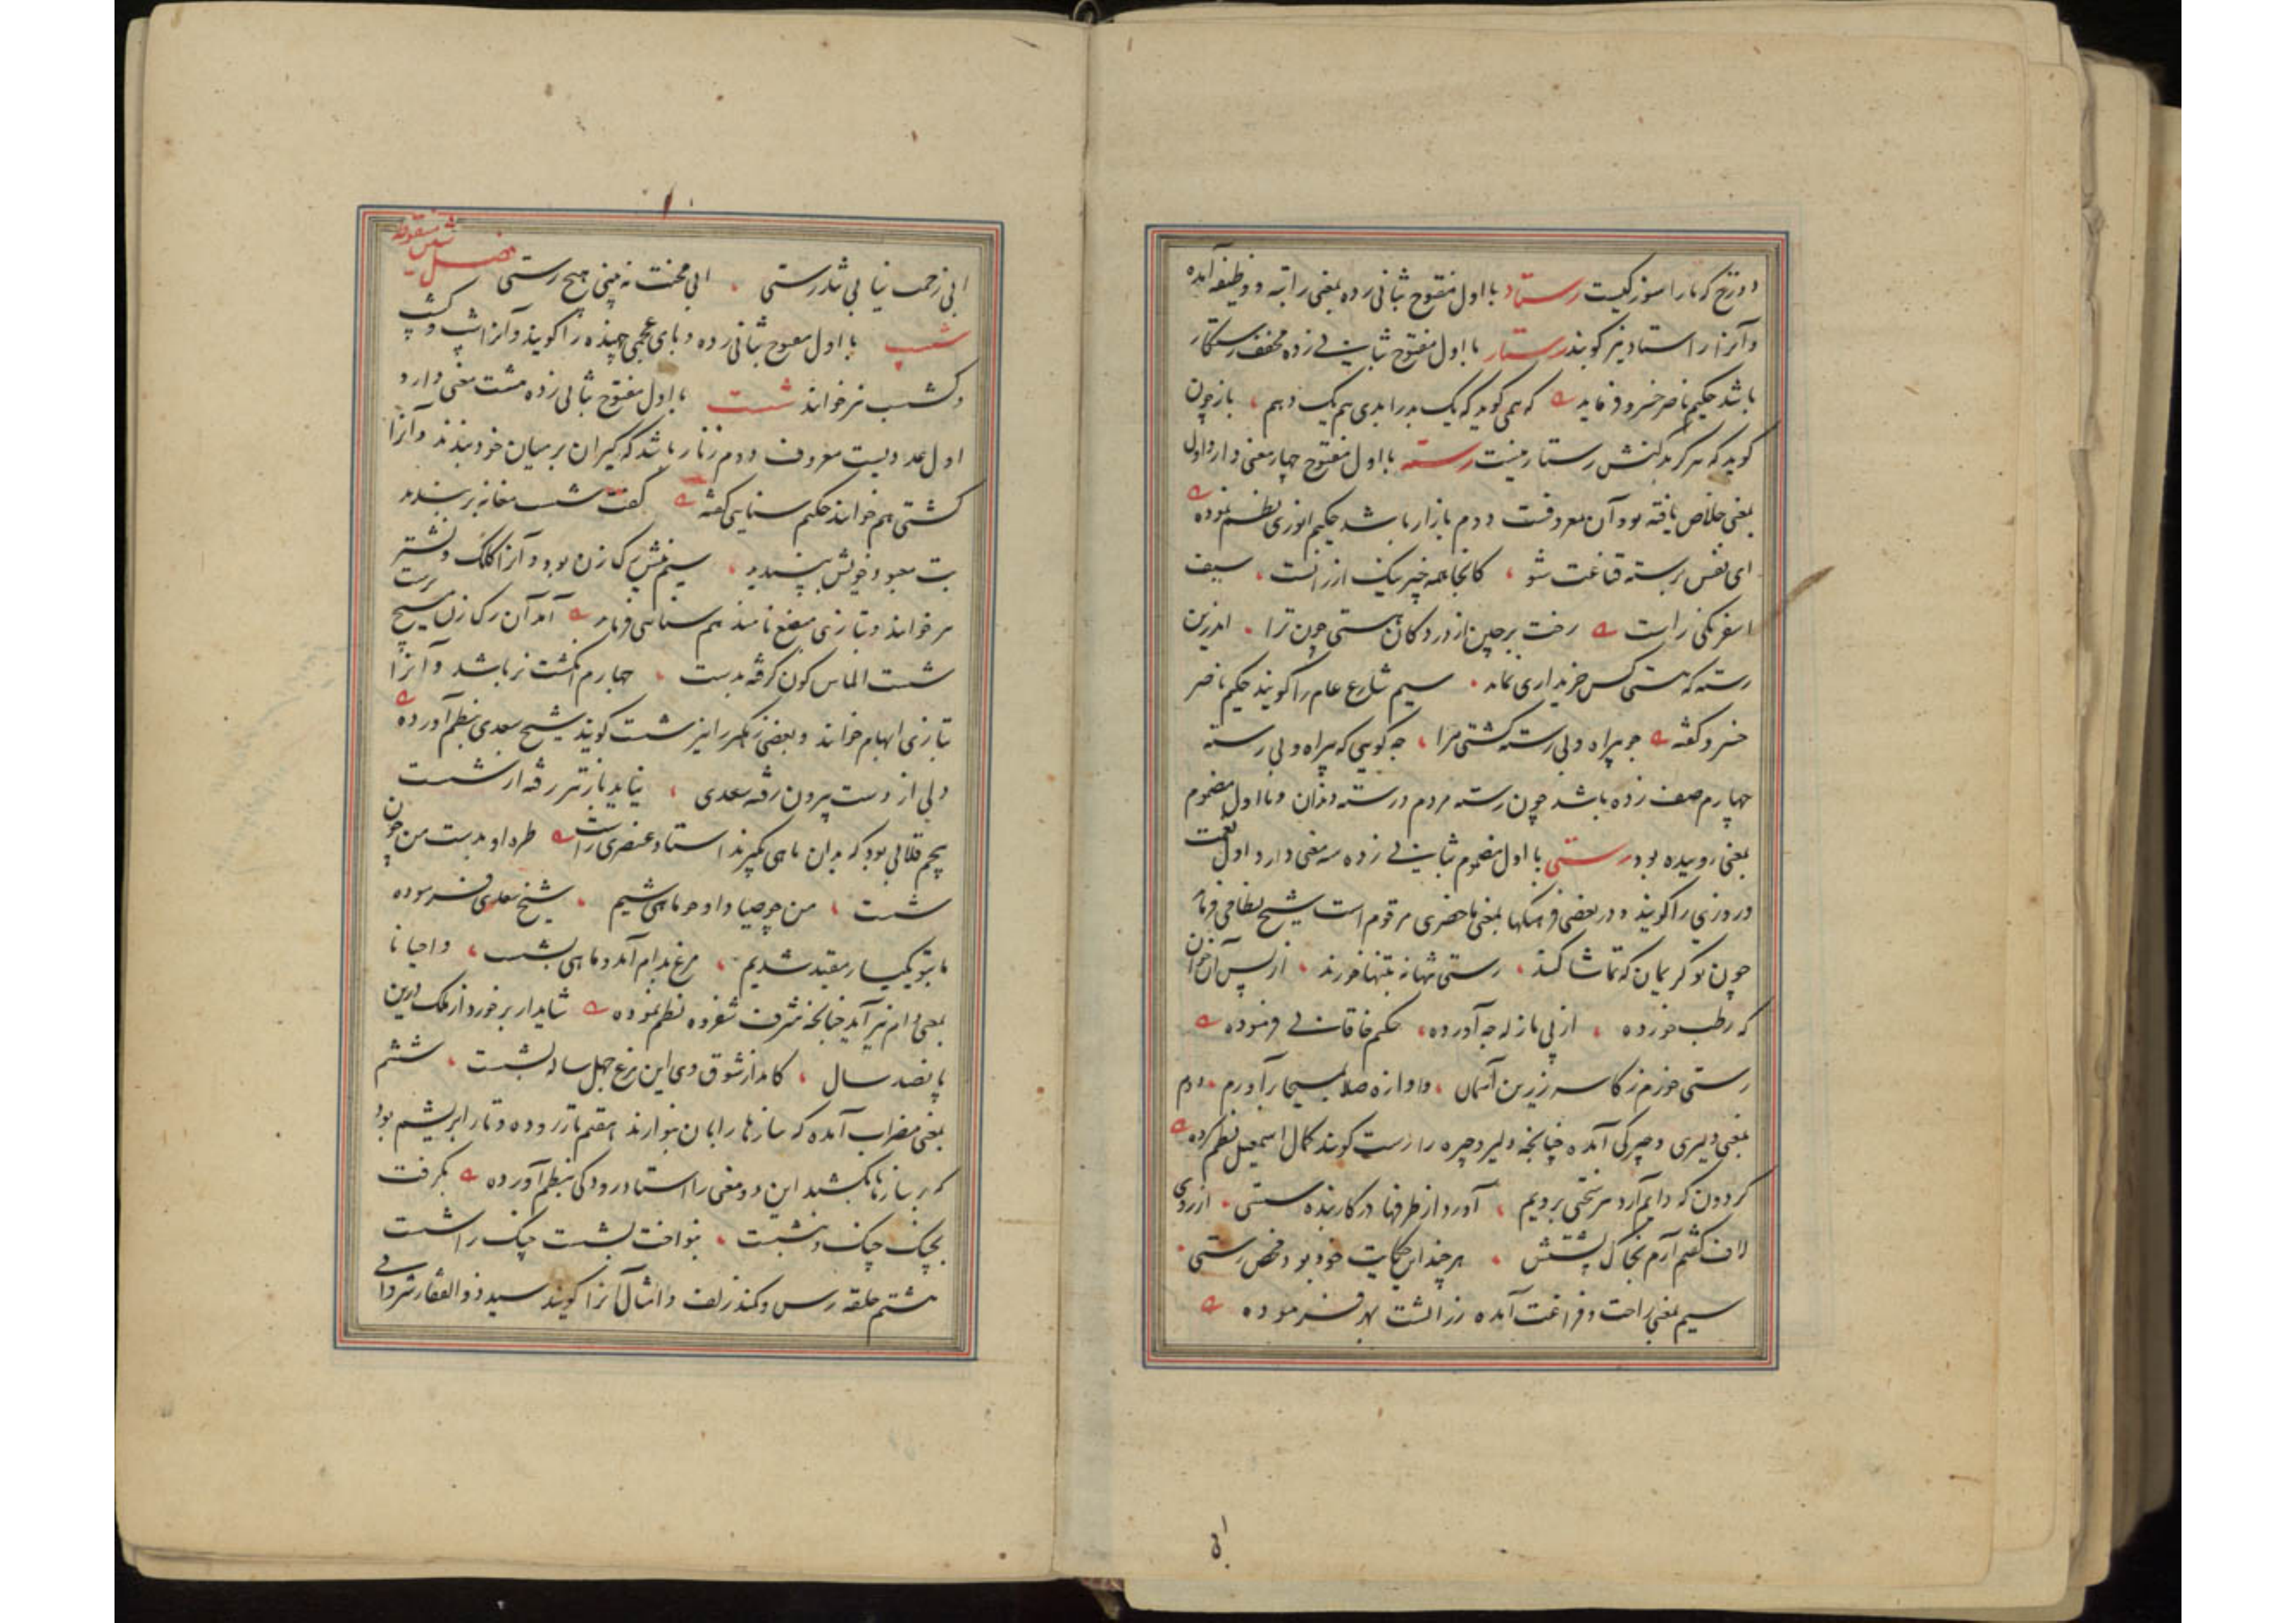 دوزخ که ما را سوز کیست رستاد با اول مفتوح بثانی زده بمعنی راتبه و وظیفه آمده
و آنرا راستاد نیز گویند رستار با اول مفتوح بثانی زده مخفف رستگار
باشد حکیم ناصر خسرو فرماید که همی گوید که یک بد را بدی هم یک دهم ، باز چون
گوید که هرگز بدکنش رستار نیست رسته با اول مفتوح چهار معنی دارد اول
بمعنی خلاص یافته بود و آن معروفست دوم بازار باشد حکیم انوری نظم نموده
ای نفس برسته قناعت شو ، کانجا همه چیز نیک ارزانست ، سیف
اسفرنکی راست رخت برچین از در دکان هستی چون ترا ، اندرین
رسته که هستی کس خریداری نماند ، سیم شارع عام را گویند حکیم ناصر
خسرو گفته چو بیراه و بی رسته گشتی مرا ، چه گویی که بیراه و بی رسته
چهارم صف زده باشد چون رسته مردم و رسته دندان و با اول مضموم
بمعنی روییده بود رستی با اول مضموم بثانی زده سه معنی دارد اول نعمت
و روزی را گویند و در بعضی فرهنگها بمعنی ماحضری مرقوم است شیخ نظامی فرماید
چون تو کریمان که تماشا کنند ، رستی تنها نه بتنها خورند ، از پس آن خوان
که رطب خورده ، از پی ما زله چه آورده ، حکیم خاقانی فرموده
رستی خورم ز کاسه زرین آسمان ، و آوازه صلا بمسیحا برآورم ، دوم
بمعنی دلیری و چیرگی آمده چنانچه دلیر و چیره را رست گویند کمال اسمعیل نظم کرده
گردون که دایم آرد سرسختی برویم ، آورد از طرفها در کار بنده سستی ، از روی
لاف گفتم آرم بخاک پشتش ، هر چند این حکایت خود بود محض رستی ،
سیم بمعنی راحت و فراغت آمده زراتشت بهرام فرموده
ابی
ابی زحمت نیابی تندرستی ، ابی محنت نه بینی هیچ رستی فصل شین منقوطه
شپ با اول مفتوح بثانی زده و بای عجمی جهنده را گویند و آنرا شپ و کشپ
و کشسب نیز خوانند شست با اول مفتوح بثانی زده هشت معنی دارد
اول عددیست معروف دوم زنار باشد که گبران بر میان خود بندند و آنرا
کشتی هم خوانند حکیم سنایی گفته گفت شست مغانه بربندد
بت معبود خویش بپسندد ، سیم نیش رگ زن بود و آنرا کلک و نشتر
نیز خوانند و بتازی مبضع نامند هم سنایی فرماید آمد آن رگ زن مسیح پرست
شست الماس گون گرفته بدست ، چهارم انگشت نر باشد و آنرا
بتازی ابهام خوانند و بعضی زهگیر را نیز شست گویند شیخ سعدی بنظم آورده
دلی از دست بیرون رفته سعدی ، نیاید باز تیر رفته از شست
پنجم قلابی بود که بدان ماهی گیرند استاد عنصری راست طره او بدست من چون
شست ، من چو صیاد او چو ماهی شیم ، شیخ سعدی فرموده
ما بتو یکبار مقید شدیم ، مرغ بدام آمد و ماهی بشست ، و احیانا
بمعنی دام نیز آید چنانچه شرف شفروه نظم نموده شاید ار برخورد از ملک درین
پانصد سال ، کامد از شوق وی این مرغ چهل ساله بشست ، ششم
بمعنی مضراب آمده که سازها را بآن بنوازند هفتم تار روده و تار ابریشم بود
که بر سازها بکشند این دو معنی را استاد رودکی بنظم آورده بگرفت
بچنگ چنگ و بنشست ، بنواخت بشست چنگ را شست
هشتم حلقه رسن و کمند زلف و امثال آنرا گویند سید ذوالفقار شروانی